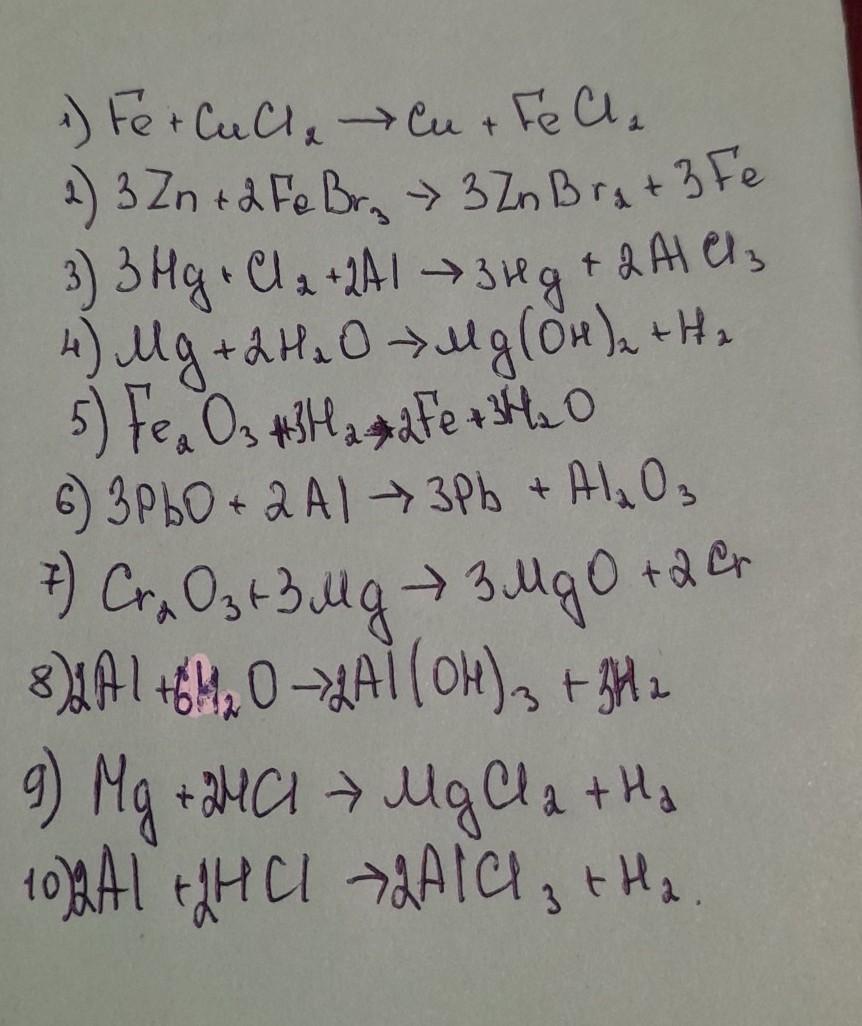 1) Fe + CuCl₂ → Cu + FeCl₂
2) 3Zn + 2FeBr₃ → 3ZnBr₂ + 3Fe
3) 3Hg · Cl₂ + 2Al → 3Hg + 2AlCl₃
4) Mg + 2H₂O → Mg(OH)₂ + H₂
5) Fe₂O₃ + 3H₂ → 2Fe + 3H₂O
6) 3PbO + 2Al → 3Pb + Al₂O₃
7) Cr₂O₃ + 3Mg → 3MgO + 2Cr
8) 2Al + 6H₂O → 2Al(OH)₃ + 3H₂
9) Mg + 2HCl → MgCl₂ + H₂
10) 2Al + 2HCl → 2AlCl₃ + H₂.